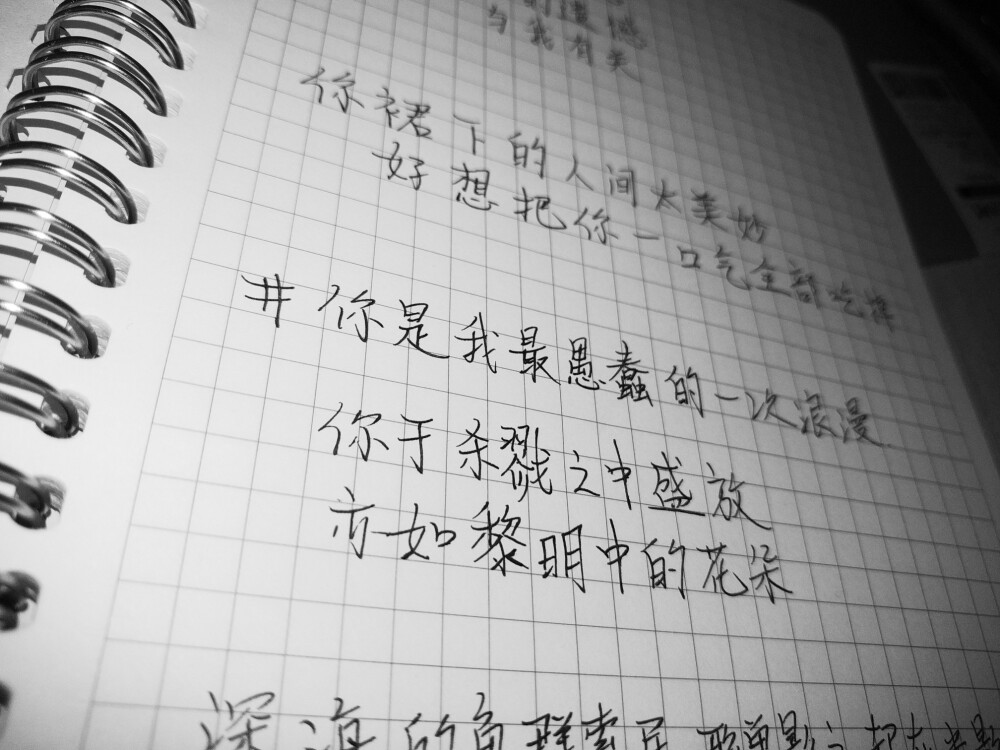 的遗憾
与我有关
你裙下的人间太美妙
好想把你一口气全部吃掉
# 你是我最愚蠢的一次浪漫
你于杀戮之中盛放
亦如黎明中的花朵
深海的角